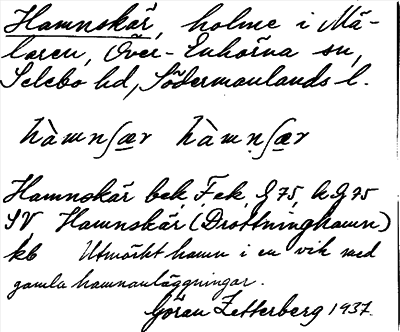 Hamnskär, holme i Mä-
laren, Över-Enhörna sn,
Selebo hd, Södermanlands l.
hàmnʃær hàmnʃær
Hamnskär bek, F.ek, G 75, h G 75
SV Hamnskär (Drottninghamn)
kb Utmärkt hamn i en vik med
gamla hamnanläggningar.
Göran Zetterberg 1937.